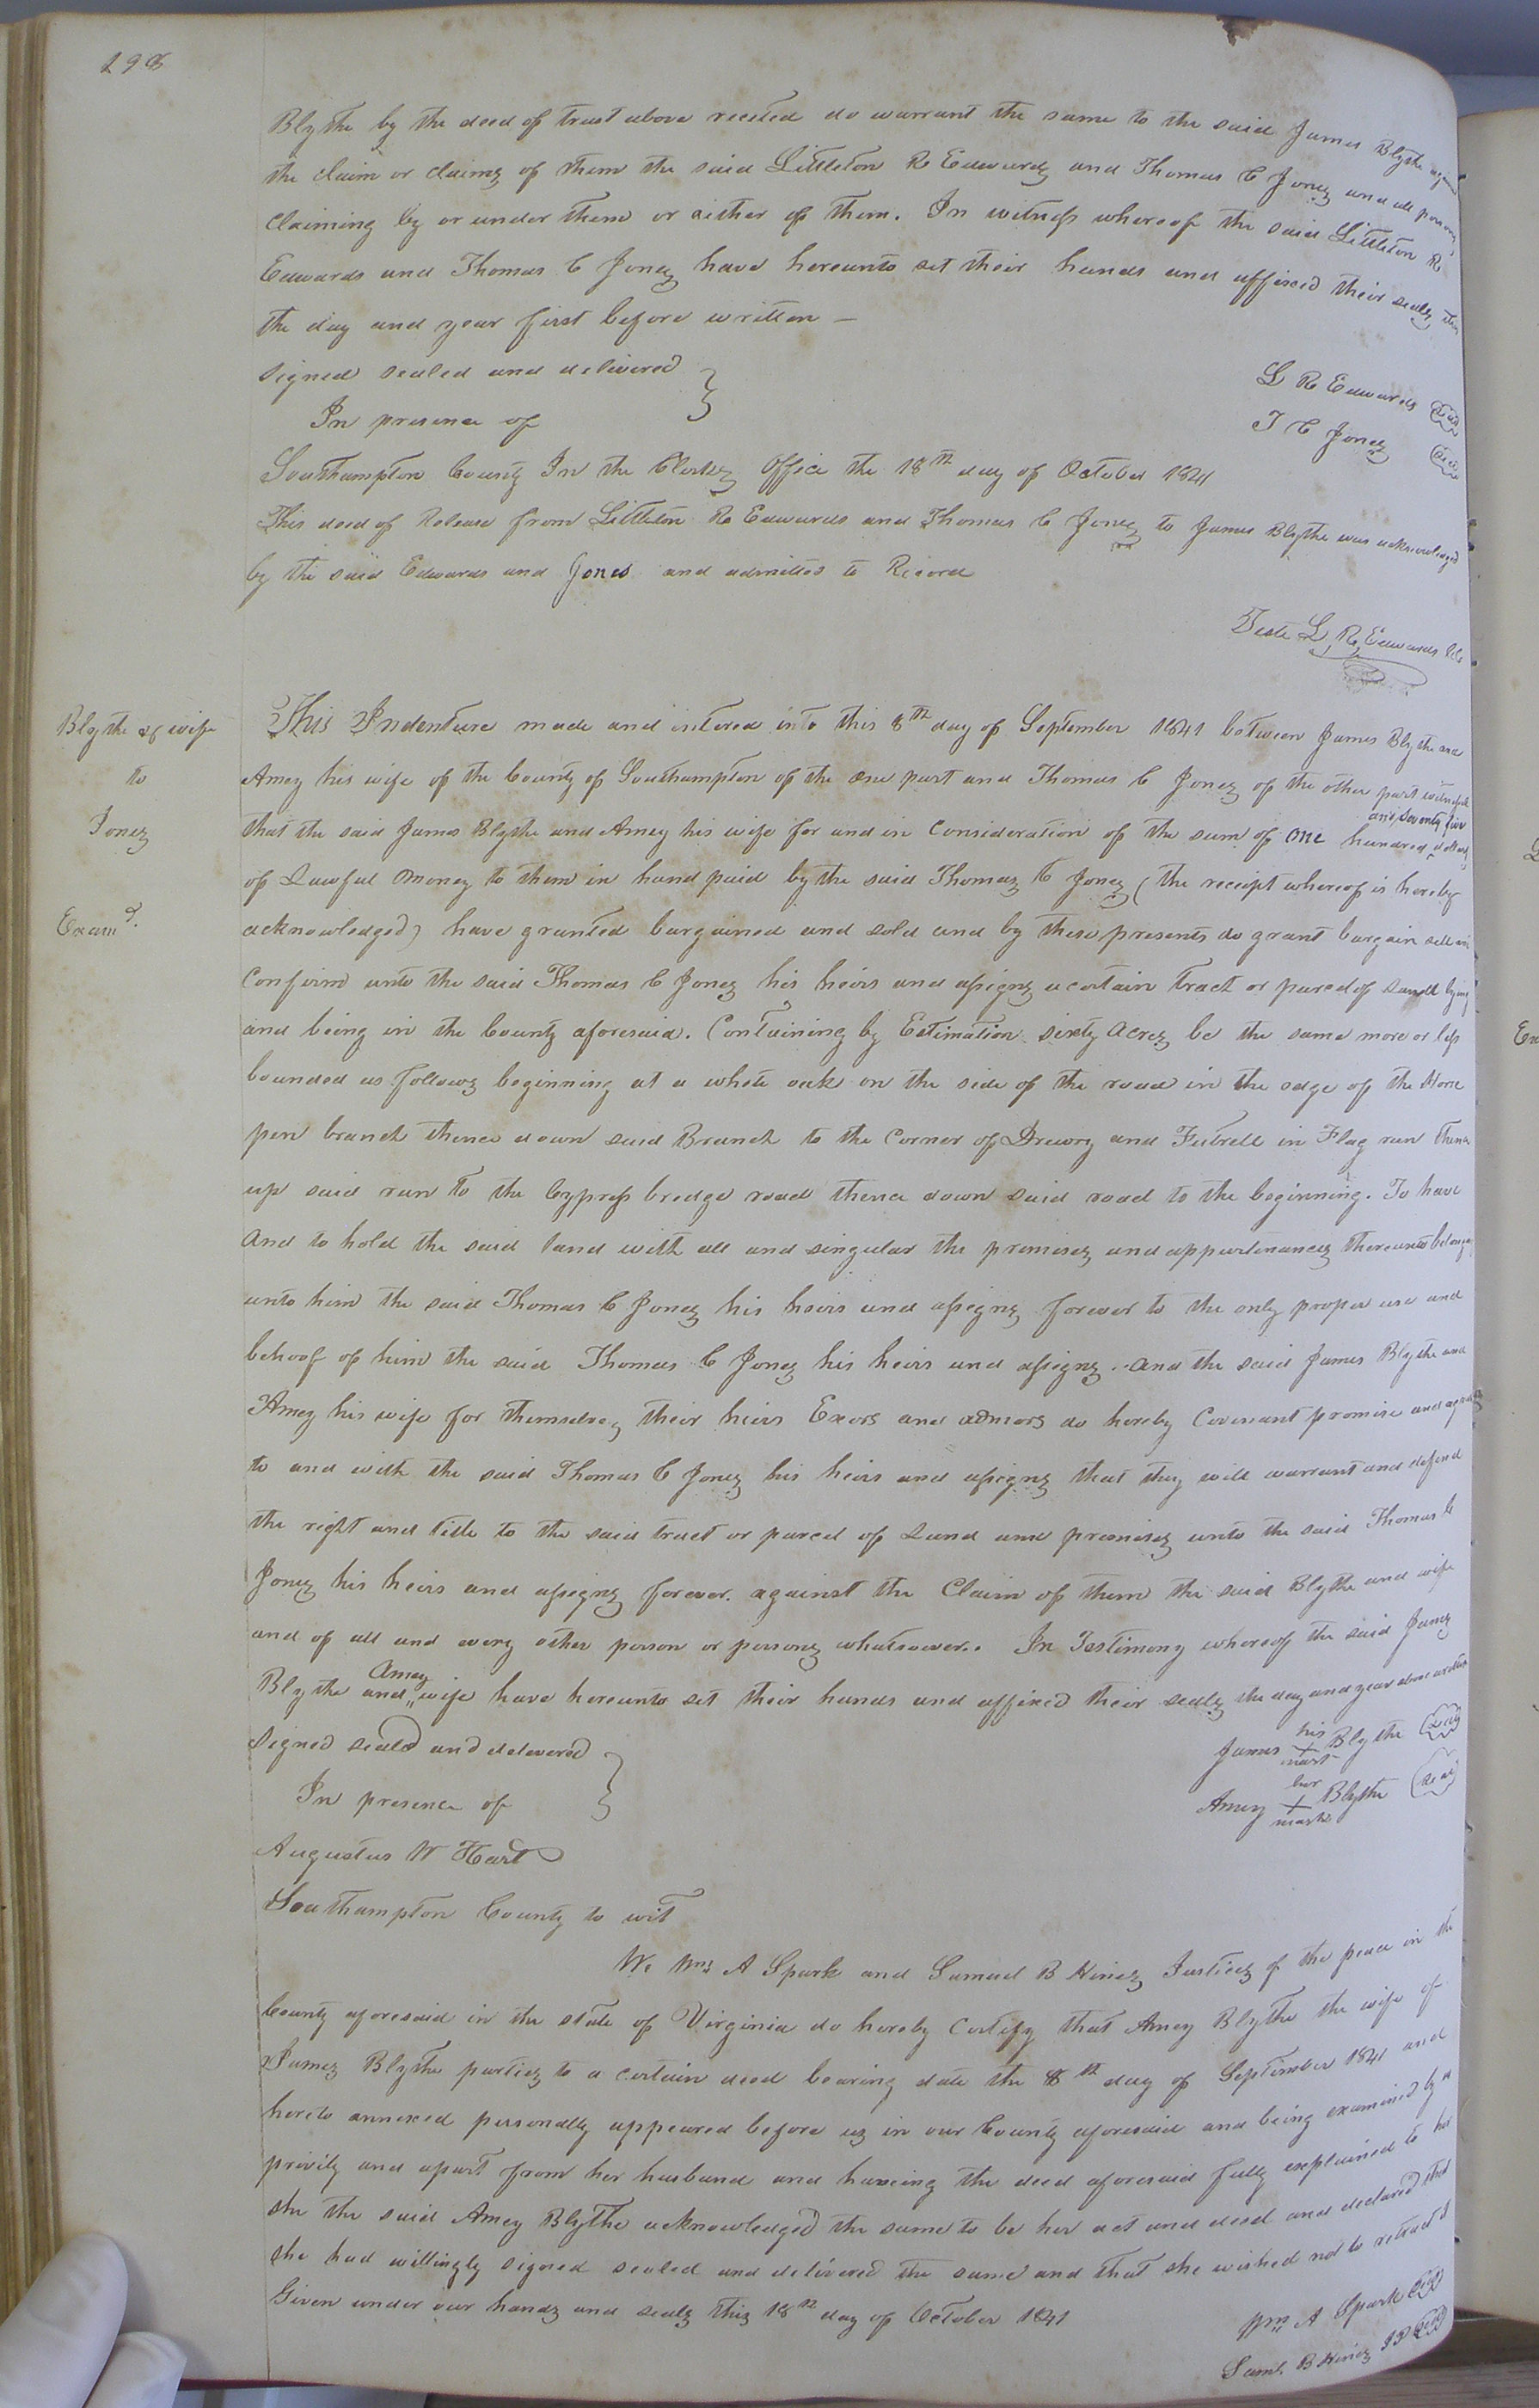 298
Blythe by the deed of trust above recited do warrant the same to the said James Blythe against
the claim or claims of them the said Littleton R Edwards and Thomas C Jones and all persons
claiming by or under them or either of them. In witness whereof the said Littleton R
Edwards and Thomas C Jones have hereunto set their hands and affixed their seals
the day and year first before written —
signed sealed and delivered
In presence of
L R Edwards Seal
T C Jones Seal
Southampton County In the Clerks Office the 18th day of October 1841
This deed of Release from Littleton R Edwards and Thomas C Jones to James Blythe was acknowledged
by the said Edwards and Jones and admitted to Record
Teste L, R, Edwards
Blythe & wife
to
Jones
Examd.
This Indenture made and intered into this 8th day of September 1841 between James Blythe and
Amey his wife of the County of Southampton of the one part and Thomas C Jones of the other part witnesseth
that the said James Blythe and Amey his wife for and in Consideration of the sum of one hundred and seventy five dollars
of Lawful money to them in hand paid by the said Thomas C Jones (the receipt whereof is hereby
acknowledged) have granted bargained and sold and by these presents do grant bargain sell and
Confirm unto the said Thomas C Jones his heirs and assigns a certain tract or parcel of Land lying
and being in the County aforesaid. Containing by Estimation sixty Acres be the same more or less
bounded as follows beginning at a white oak on the side of the road in the edge of the Horse
pen branch thence down said Branch to the Corner of Drewry and Futrell in Flag run thence
up said run to the Cypress bredge road thence down said road to the beginning. To have
and to hold the said land with all and singular the premises and appurtenances thereunto belonging
unto him the said Thomas C Jones his heirs and assigns forever to the only proper use and
behoof of him the said Thomas C Jones his heirs and assigns. and the said James Blythe and
Amey his wife for themselves their heirs Exors and admors do hereby Covenant promise and agree
to and with the said Thomas C Jones his heirs and assigns that they will warrant and defend
the right and title to the said tract or parcel of Land and premises unto the said Thomas C
Jones his heirs and assigns forever. against the Claim of them the said Blythe and wife
and of all and every other person or persons whatsoever. In Testimony whereof the said James
Blythe and Amey wife have hereunto set their hands and affixed their seals the day and year above written
Signed seald and delevered
In presence of
Augustus W Hart
James his + mark Blythe Seal
Amey her + mark Blythe Seal
Southampton County to wit
We Wm A Spark and Samuel B Hines Justices of the peace in the
County aforesaid in the state of Virginia do hereby Certify that Amey Blythe the wife of
James Blythe parties to a certain deed bearing date the 8th day of September 1841 and
hereto annexed personally appeared before us in our County aforesaid and being examined by us
privily and apart from her husband and haveing the deed aforesaid fully explained to her
she the said Amey Blythe acknowledged the same to be her act and deed and declared that
she had willingly signed sealed and delivered the same and that she wished not to retract it
Given under our hands and seals this 18th day of October 1841
Wm A Spark Seal
Saml. B Hines JP Seal